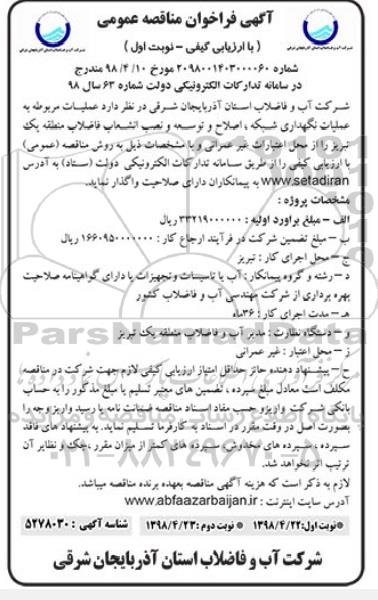 آگهی فراخوان مناقصه عمومی
( با ارزیابی کیفی - نوبت اول )
شماره ۲۰۹۸۰۰۱۴۰۳۰۰۰۰۶۰ مورخ ۹۸/۴/۱۰ مندرج
در سامانه تدارکات الکترونیکی دولت شماره ۶۳ سال ۹۸
شرکت آب و فاضلاب استان آذربایجان شرقی در نظر دارد عملیات مربوطه به
عملیات نگهداری شبکه ، اصلاح و توسعه و نصب انشعاب فاضلاب منطقه یک
تبریز را از محل اعتبارات غیر عمرانی و با مشخصات ذیل به روش مناقصه (عمومی)
با ارزیابی کیفی را از طریق سامانه تدارکات الکترونیکی دولت (ستاد) به آدرس
www.setadiran به پیمانکاران دارای صلاحیت واگذار نماید.
مشخصات پروژه :
الف - مبلغ براورد اولیه : ۳۳۲۱۹۰۰۰۰۰۰ ریال
ب - مبلغ تضمین شرکت در فرآیند ارجاع کار : ۱۶۶۰۹۵۰۰۰۰۰۰ ریال
ج - محل اجرای کار : تبریز
د - رشته و گروه پیمانکار : آب یا تاسیسات و تجهیزات یا دارای گواهینامه صلاحیت
بهره برداری از شرکت مهندسی آب و فاضلاب کشور
هـ - مدت اجرای کار : ۳۶ماه
و - دستگاه نظارت : مدیر آب و فاضلاب منطقه یک تبریز
ز - محل اعتبار : غیر عمرانی
ح - پیشنهاد دهنده حائز حداقل امتیاز ارزیابی کیفی لازم جهت شرکت در مناقصه
مکلف است معادل مبلغ سپرده ، تضمین های معتبر تسلیم یا مبلغ مذکور را به حساب
بانکی شرکت واریز و حسب مفاد اسناد مناقصه ضمانت نامه یا رسید واریز وجه را
بصورت اصل در وقت مقرر در اسناد به کارفرما تسلیم نماید. به پیشنهاد های فاقد
سپرده ، سپرده های مخدوش، سپرده های کمتر از میزان مقرر ،چک و نظایر آن
ترتیب اثر نخواهد شد.
لازم به ذکر است که هزینه آگهی مناقصه بعهده برنده مناقصه میباشد.
آدرس سایت اینترنت : www.abfaazarbaijan.ir
نوبت اول: ۱۳۹۸/۴/۲۲ نوبت دوم : ۱۳۹۸/۴/۲۳ شناسه آگهی : ۵۲۷۸۰۳۰
شرکت آب و فاضلاب استان آذربایجان شرقی